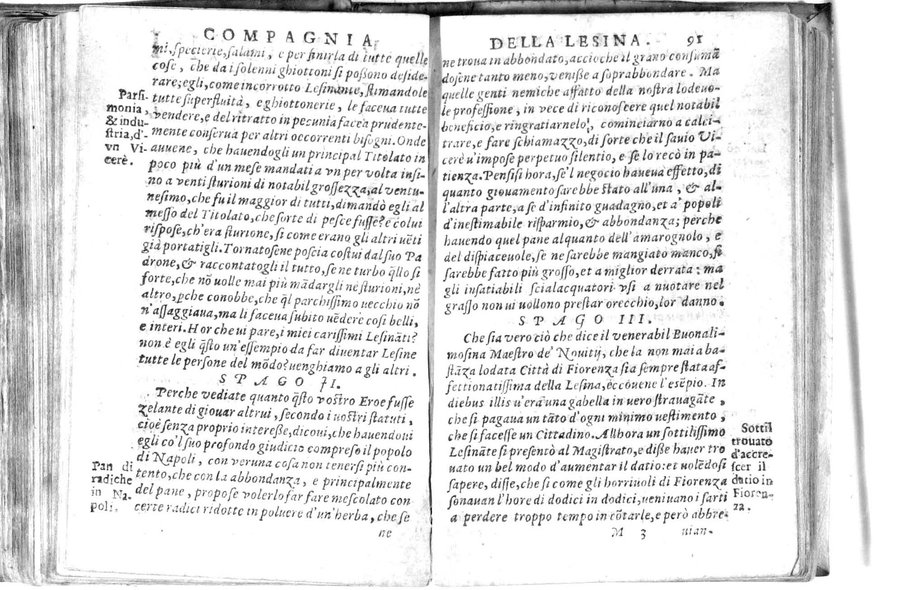 COMPAGNIA
mi, specierie, salami, e per finirla di tutte quelle
cose, che da i solenni ghiottoni si possono deside-
rare; egli, come incorrotto Lesinante, stimandole
tutte superfluità, e ghiottonerie, le faceua tutte
vendere, e del ritratto in pecunia facea prudente-
mente conserua per altri occorrenti bisogni. Onde
auuene, che hauendogli un principal Titolato in
poco più d'un mese mandati a vn per volta insi-
no a venti sturioni di notabil grossezza, al ventu-
nesimo, che fu il maggior di tutti, dimandò egli al
messo del Titolato, che sorte di pesce fusse? e colui
rispose, ch'era sturione, si come erano gli altri uẽti
già portatigli. Tornatosene poscia costui dal suo Pa
drone, & raccontatogli il tutto, se ne turbo q̃llo si
forte, che nõ uolle mai più mãdargli ne sturioni, nè
altro, p̱che conobbe, che q̃l parchissimo uecchio nõ
n'assaggiaua, ma li faceua subito uẽdere cosi belli,
e interi. Hor che ui pare, i miei carissimi Lesinãti?
non è egli q̃sto un'essempio da far diuentar Lesine
tutte le persone del mõdo? uenghiamo a gli altri.
SPAGO II.
Perche vediate quanto q̃sto vostro Eroe fusse
zelante di giouar altrui, secondo i nostri statuti,
cioè senza proprio interesse, dicoui, che hauendoui
egli co'l suo profondo giudicio compreso il popolo
di Napoli, con veruna cosa non tenersi più con-
tento, che con la abbondanza, e principalmente
del pane, propose volerlo far fare mescolato con
certe radici ridotte in poluere d'un'herba, che se
ne
Parsi-
monia,
& indu-
stria, d'-
vn Vi-
cerè.
Pan di
radiche
in Na-
poli.
DELLA LESINA. 91
ne troua in abbondato, accioche il grano consumã
dosene tanto meno, venisse a soprabbondare. Ma
quelle genti nemiche affatto della nostra lodeuo-
le professione, in vece di riconoscere quel notabil
beneficio, e ringratiarnelo, cominciarno a calci-
trare, e fare schiamazzo, di sorte che il sauio Vi-
cerè u'impose perpetuo silentio, e se lo recò in pa-
tienza. Pensisi hora, se'l negocio haueua effetto, di
quanto giouamento sarebbe stato all'una, & al-
l'altra parte, a sè d'infinito guadagno, et a' popoli
d'inestimabile risparmio, & abbondanza; perche
hauendo quel pane alquanto dell'amarognolo, e
del dispiaceuole, se ne sarebbe mangiato manco, si
sarebbe fatto più grosso, et a miglior derrata: ma
gli insatiabili scialacquatori usi a nuotare nel
grasso non ui uollono prestar orecchio, lor danno.
SPAGO III.
Che sia vero ciò che dice il venerabil Buonali-
mosina Maestro de' Nouitij, che la non mai a ba-
stãza lodata Città di Fiorenza sia sempre stata af-
fettionatissima della Lesina, eccouene l'esẽpio. In
diebus illis u'era una gabella in uero strauagãte,
che si pagaua un tãto d'ogni minimo uestimento,
che si facesse un Cittadino. Allhora un sottilissimo
Lesinãte si presentò al Magistrato, e disse hauer tro
uato un bel modo d'aumentar il datio: et uolẽdosi
sapere, disse, che si come gli horriuoli di Fiorenza
sonauan l'hore di dodici in dodici, ueniuano i sarti
a perdere troppo tempo in cõtarle, e però abbre-
M 3 nian-
Sottil
trouato
d'accre-
scer il
datio in
Fioren-
za.